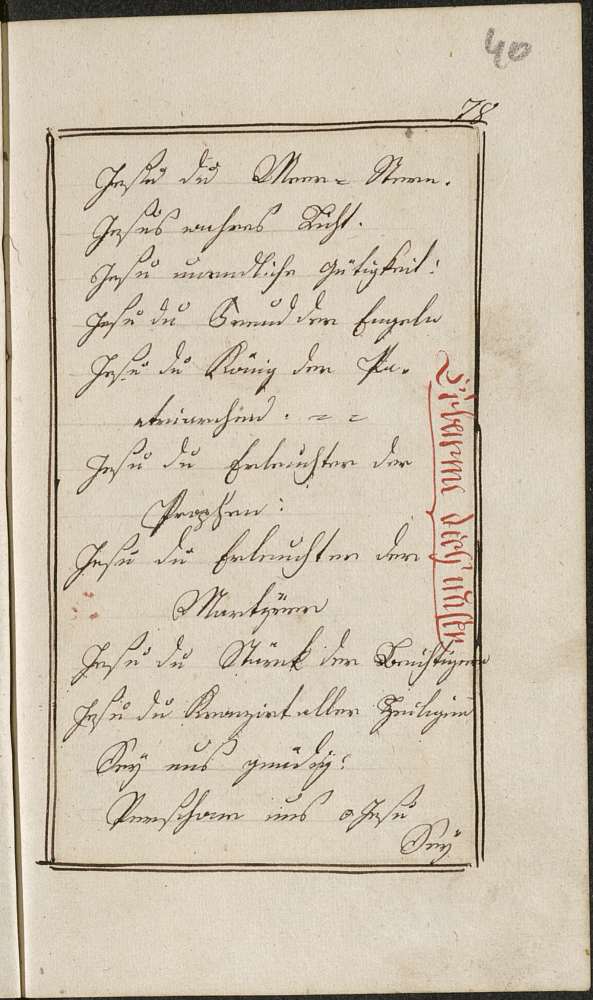 40
78
Jesu du Meer= Stern.
Jesus wahres Licht.
Jesu unendliche Gütigkeit:
Jesu du Freud der Engeln
Jesu du König der Pa=
atriarchen. = =
Jesu du Erleuchter der
Propheten:
Jesu du Erleuchter der
Martyrer
Jesu du Stärck der Beichtigern
Jesu du Kronzirt aller Heiligen
Erbarme dich unser
Sey uns gnädig:
Verschone uns o Jesu
Sey